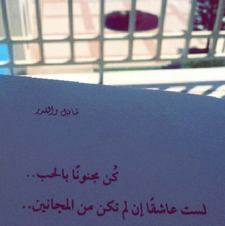 قاتل والقدر
كُن مجنونًا بالحب..
لست عاشقًا إن لم تكن من المجانين..